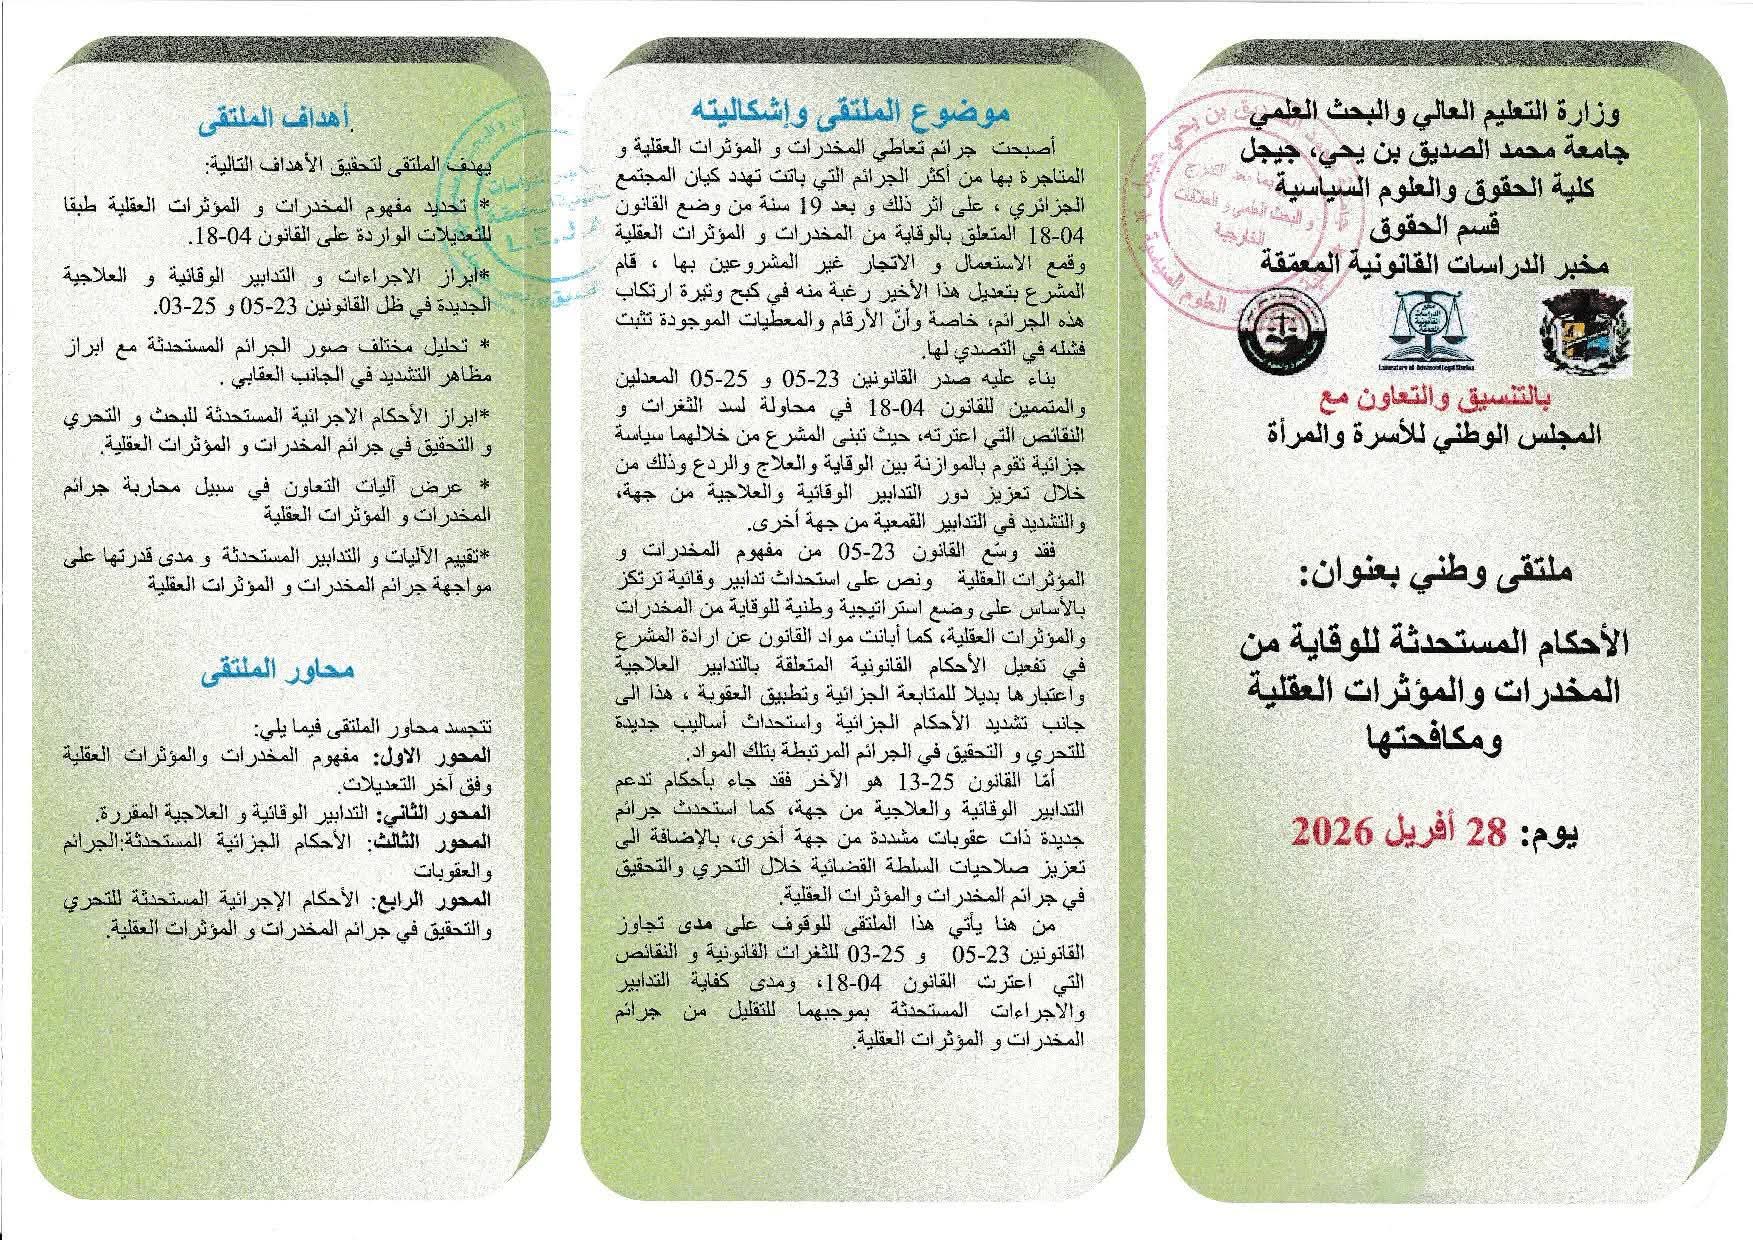 وزارة التعليم العالي والبحث العلمي
جامعة محمد الصديق بن يحي، جيجل
كلية الحقوق والعلوم السياسية
قسم الحقوق
مخبر الدراسات القانونية المعمّقة
Laboratory of Advanced Legal Studies
بالتنسيق والتعاون مع
المجلس الوطني للأسرة والمرأة
ملتقى وطني بعنوان:
الأحكام المستحدثة للوقاية من
المخدرات والمؤثرات العقلية
ومكافحتها
يوم: 28 أفريل 2026
موضوع الملتقى وإشكاليته
أصبحت جرائم تعاطي المخدرات و المؤثرات العقلية و
المتاجرة بها من أكثر الجرائم التي باتت تهدد كيان المجتمع
الجزائري ، على اثر ذلك و بعد 19 سنة من وضع القانون
04-18 المتعلق بالوقاية من المخدرات و المؤثرات العقلية
وقمع الاستعمال و الاتجار غير المشروعين بها ، قام
المشرع بتعديل هذا الأخير رغبة منه في كبح وتيرة ارتكاب
هذه الجرائم، خاصة وأنّ الأرقام والمعطيات الموجودة تثبت
فشله في التصدي لها.
بناء عليه صدر القانونين 23-05 و 25-05 المعدلين
والمتممين للقانون 04-18 في محاولة لسد الثغرات و
النقائص التي اعترته، حيث تبنى المشرع من خلالهما سياسة
جزائية تقوم بالموازنة بين الوقاية والعلاج والردع وذلك من
خلال تعزيز دور التدابير الوقائية والعلاجية من جهة،
والتشديد في التدابير القمعية من جهة أخرى.
فقد وسّع القانون 23-05 من مفهوم المخدرات و
المؤثرات العقلية ونص على استحداث تدابير وقائية ترتكز
بالأساس على وضع استراتيجية وطنية للوقاية من المخدرات
والمؤثرات العقلية، كما أبانت مواد القانون عن ارادة المشرع
في تفعيل الأحكام القانونية المتعلقة بالتدابير العلاجية
واعتبارها بديلا للمتابعة الجزائية وتطبيق العقوبة ، هذا الى
جانب تشديد الأحكام الجزائية واستحداث أساليب جديدة
للتحري و التحقيق في الجرائم المرتبطة بتلك المواد.
أمّا القانون 25-13 هو الآخر فقد جاء بأحكام تدعم
التدابير الوقائية والعلاجية من جهة، كما استحدث جرائم
جديدة ذات عقوبات مشددة من جهة أخرى، بالإضافة الى
تعزيز صلاحيات السلطة القضائية خلال التحري والتحقيق
في جرائم المخدرات والمؤثرات العقلية.
من هنا يأتي هذا الملتقى للوقوف على مدى تجاوز
القانونين 23-05 و 25-03 للثغرات القانونية و النقائص
التي اعترت القانون 04-18، ومدى كفاية التدابير
والاجراءات المستحدثة بموجبهما للتقليل من جرائم
المخدرات و المؤثرات العقلية.
أهداف الملتقى
يهدف الملتقى لتحقيق الأهداف التالية:
* تحديد مفهوم المخدرات و المؤثرات العقلية طبقا
للتعديلات الواردة على القانون 04-18.
*ابراز الاجراءات و التدابير الوقائية و العلاجية
الجديدة في ظل القانونين 23-05 و 25-03.
* تحليل مختلف صور الجرائم المستحدثة مع ابراز
مظاهر التشديد في الجانب العقابي .
*ابراز الأحكام الاجرائية المستحدثة للبحث و التحري
و التحقيق في جرائم المخدرات و المؤثرات العقلية.
* عرض آليات التعاون في سبيل محاربة جرائم
المخدرات و المؤثرات العقلية
*تقييم الآليات و التدابير المستحدثة و مدى قدرتها على
مواجهة جرائم المخدرات و المؤثرات العقلية
محاور الملتقى
تتجسد محاور الملتقى فيما يلي:
المحور الاول: مفهوم المخدرات والمؤثرات العقلية
وفق آخر التعديلات.
المحور الثاني: التدابير الوقائية و العلاجية المقررة.
المحور الثالث: الأحكام الجزائية المستحدثة:الجرائم
والعقوبات
المحور الرابع: الأحكام الإجرائية المستحدثة للتحري
والتحقيق في جرائم المخدرات و المؤثرات العقلية.